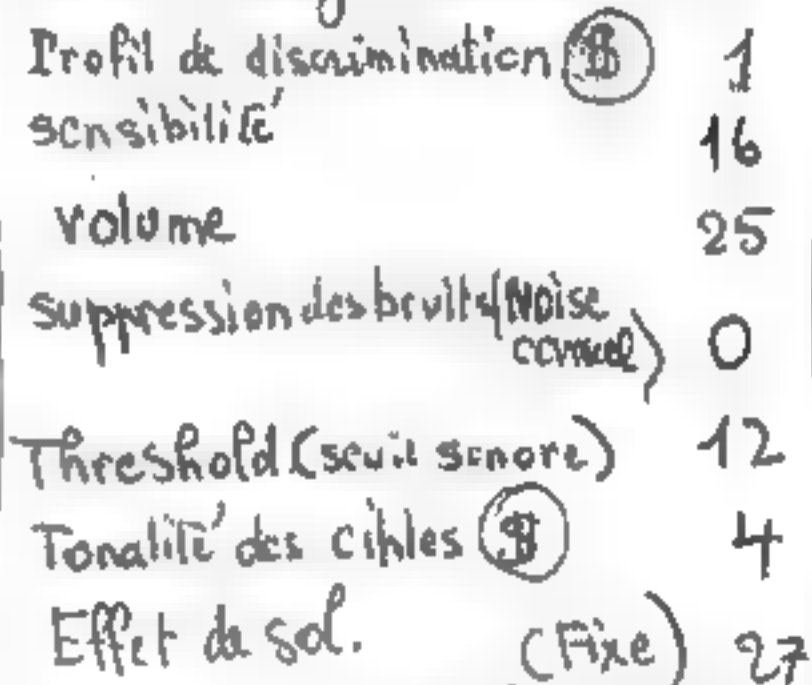 Profil de discrimination $ 1
sensibilité 16
volume 25
suppression des bruits (Noise
cancel) 0
Threshold (seuil sonore) 12
Tonalité des cibles $ 4
Effet de sol. (Fixe) 27